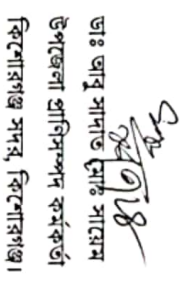 ডাঃ আবু সাদাত মোঃ সায়েম
উপজেলা প্রাণিসম্পদ কর্মকর্তা
কিশোরগঞ্জ সদর, কিশোরগঞ্জ।